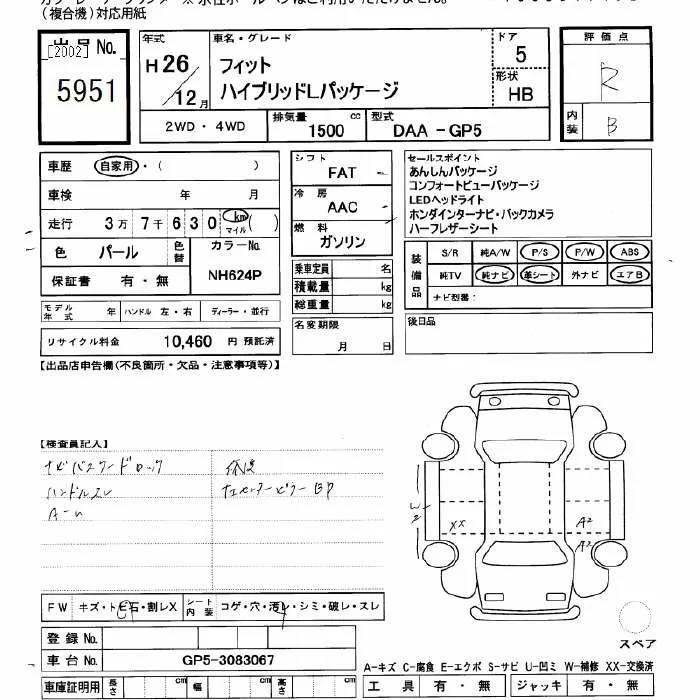 (複合機)対応用紙
出品No.
[2002]
5951
年式
H26/12月
車名・グレード
フィット
ハイブリッドLパッケージ
ドア
5
形状
HB
評価点
R
内装
B
2WD・4WD
排気量 1500 cc
型式 DAA-GP5
車歴 自家用・( )
車検 年 月
走行 3万7千630 km マイル( )
色 パール 色替
カラーNo. NH624P
保証書 有・無
モデル年式 年 ハンドル 左・右 ディーラー・並行
リサイクル料金 10,460 円 預託済
シフト FAT
冷房 AAC
燃料 ガソリン
乗車定員 名
積載量 kg
総重量 kg
名変期限
月 日
セールスポイント
あんしんパッケージ
コンフォートビューパッケージ
LEDヘッドライト
ホンダインターナビ・バックカメラ
ハーフレザーシート
装備品
S/R 純A/W P/S P/W ABS
純TV 純ナビ 革シート 外ナビ エアB
ナビ型番:
後日品
【出品店申告欄(不良箇所・欠品・注意事項等)】
【検査員記入】
ナビパスワードロック
ハンドルスレ
修復
センターピラーBP
W2
XX
A2
A2
FW キズ・トビ石・割レX
シート内装 コゲ・穴・汚レ・シミ・破レ・スレ
登録No.
車台No. GP5-3083067
車庫証明用 長さ cm 幅 cm 高さ cm
スペア
A-キズ C-腐食 E-エクボ S-サビ U-凹ミ W-補修 XX-交換済
工具 有・無 ジャッキ 有・無